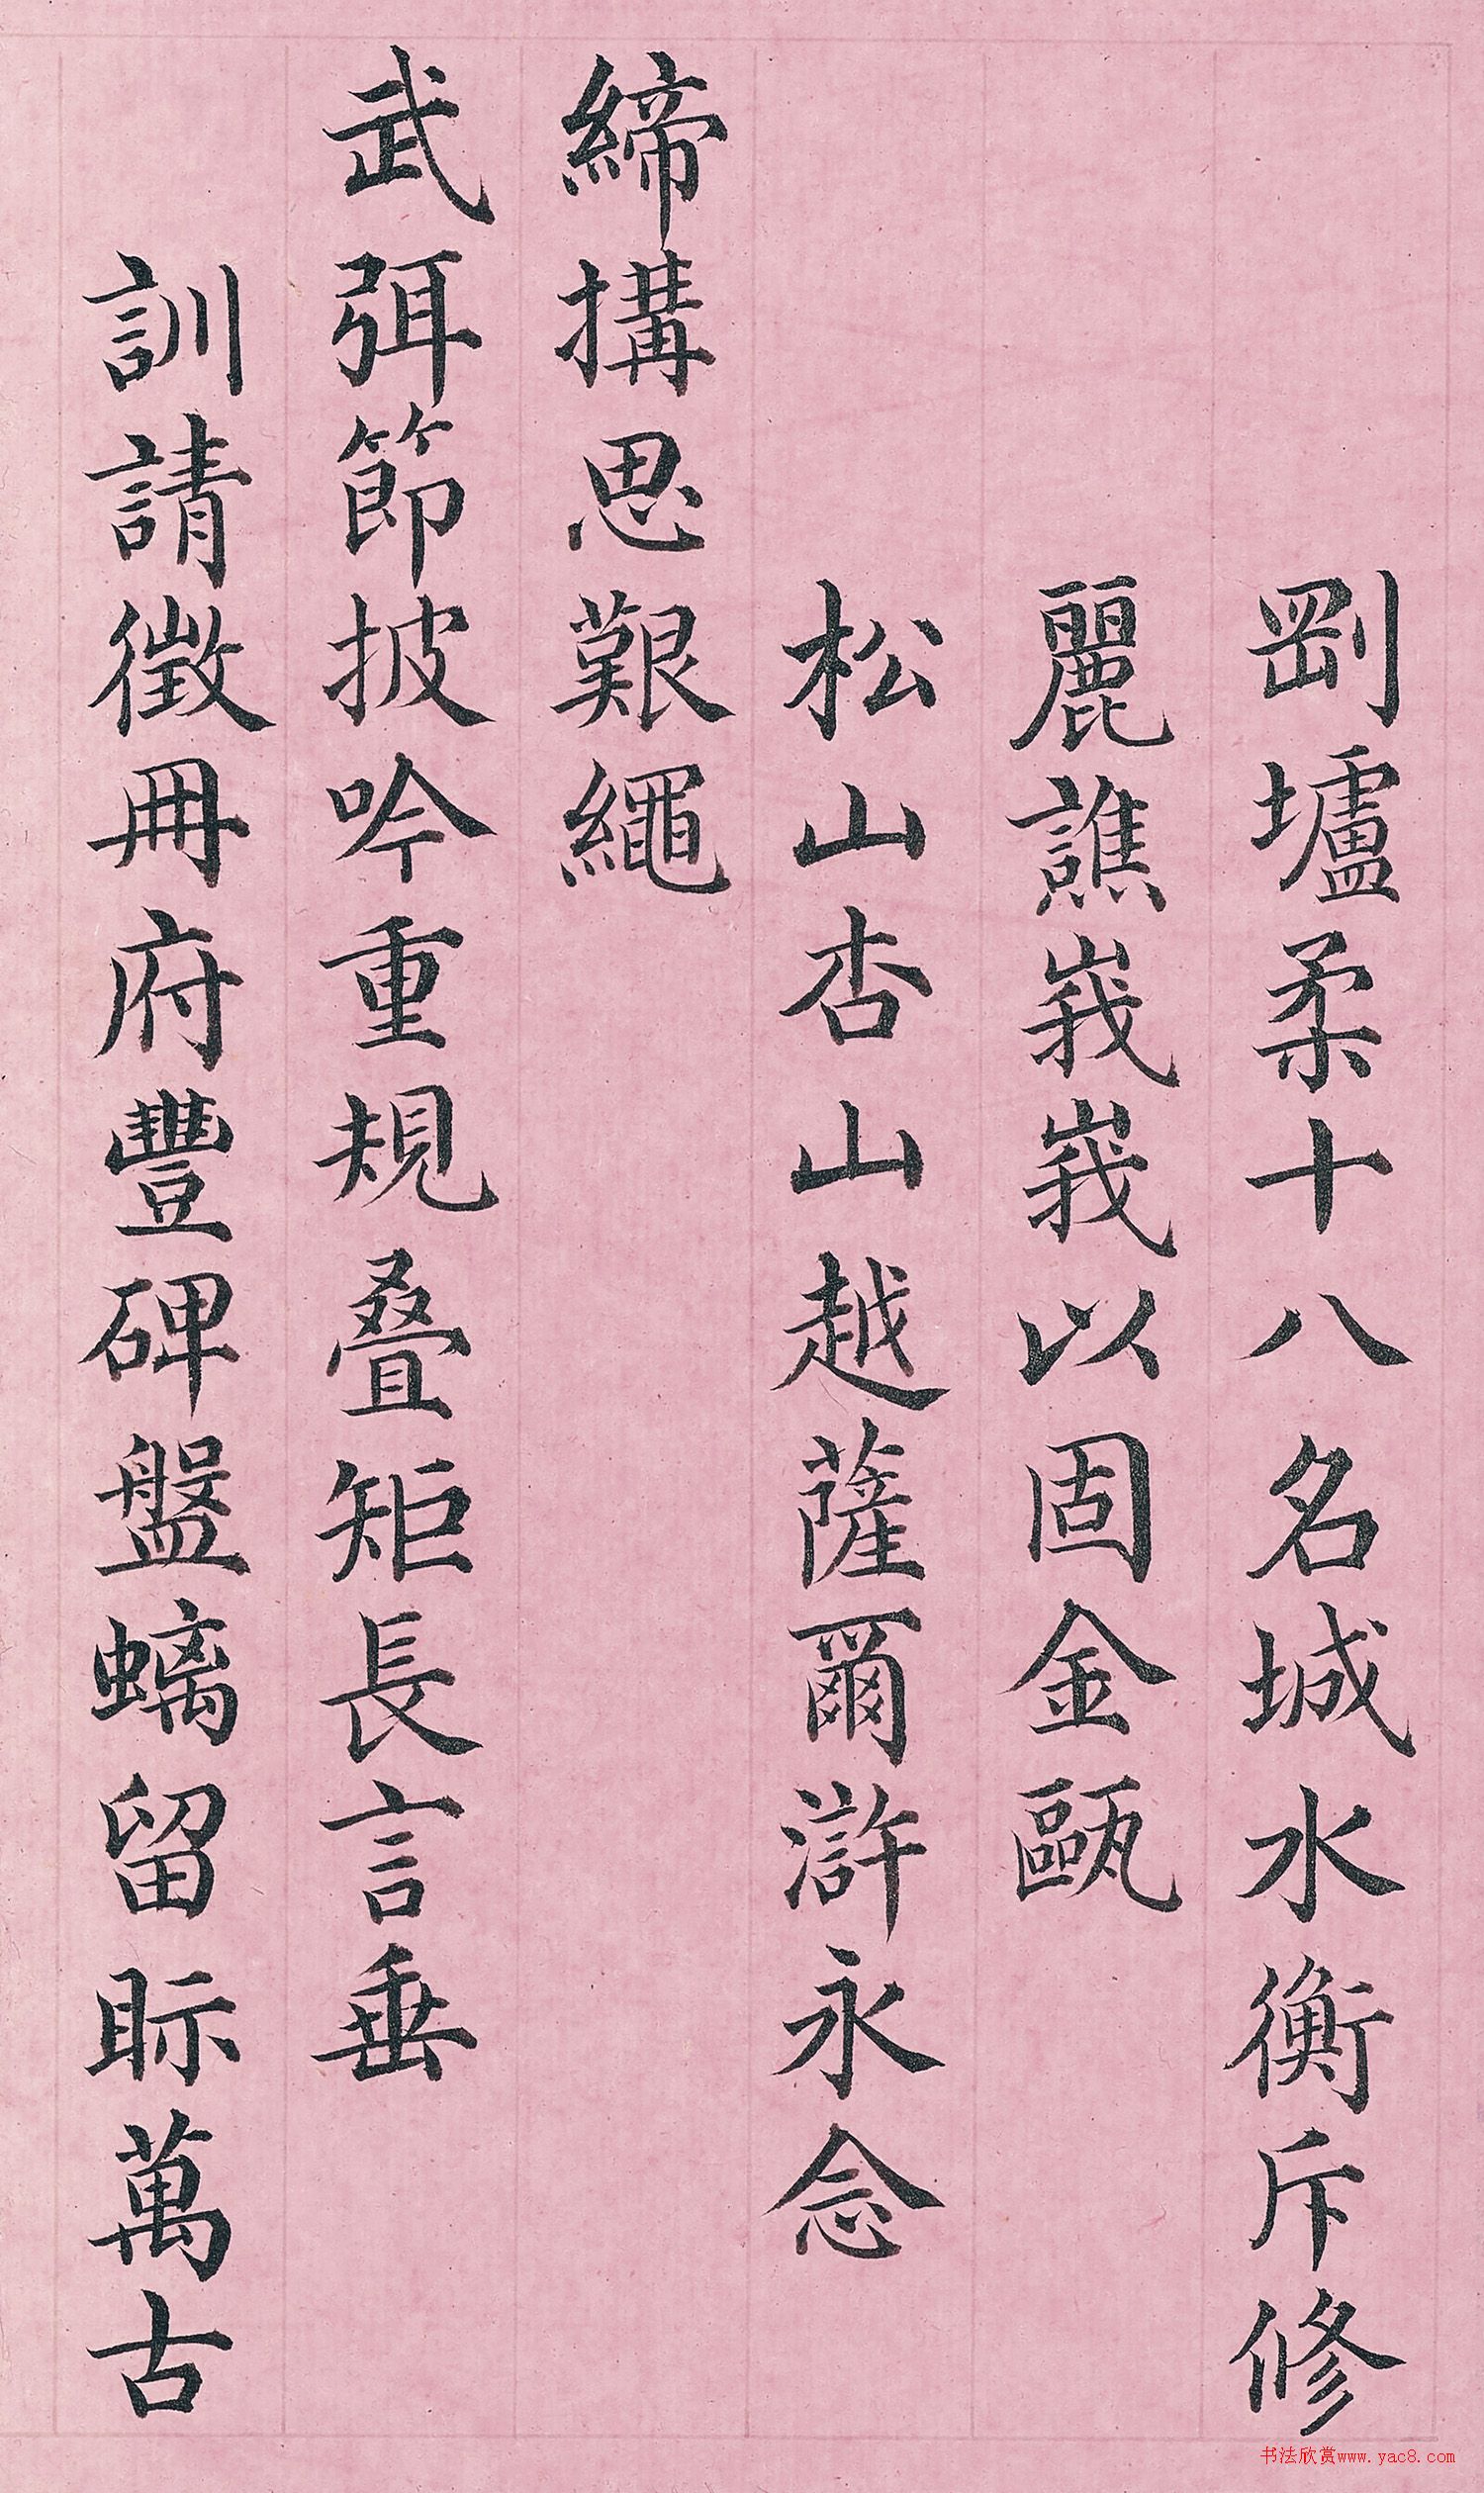 剛壚柔十八名城水衡斥修
麗譙峩峩以固金甌
松山杏山越薩爾滸永念
締搆思艱繩
武弭節披吟重規疊矩長言垂
訓請徵冊府豐碑盤螭留眎萬古
书法欣赏www.yac8.com